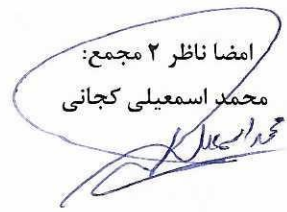 امضا ناظر ۲ مجمع:
محمد اسمعیلی کجانی
محمد اسمعیلی